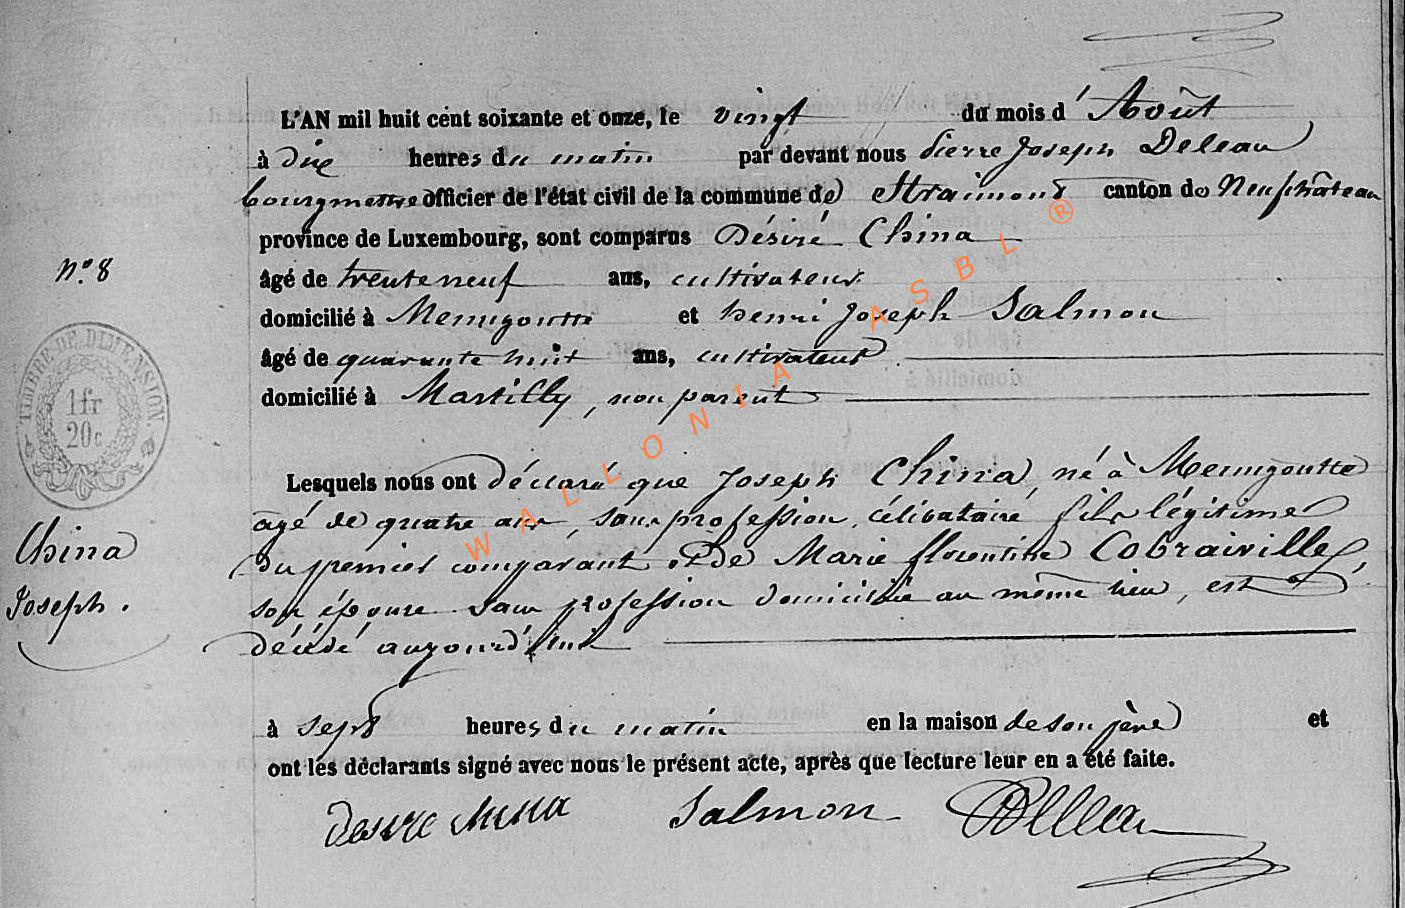 L'AN mil huit cent soixante et onze, le vingt du mois d'Août
à dix heures du matin par devant nous Pierre Joseph Deleau
bourgmestre officier de l'état civil de la commune de Straimont canton de Neufchâteau
province de Luxembourg, sont comparus Désiré China
N.° 8
âgé de trente neuf ans, cultivateur
domicilié à Menugoutte et henri Joseph Salmon
âgé de quarante huit ans, cultivateur
domicilié à Martilly, non parent
TIMBRE DE DIMENSION.
1fr
20c
Lesquels nous ont déclaré que Joseph China, né à Menugoutte
âgé de quatre ans, sans profession, célibataire fils légitime
China
du premier comparant et de Marie florentine Cobraiville,
Joseph.
son épouse sans profession domiciliée au même lieu, est
décédé aujourd'hui
à sept heures du matin en la maison de son père et
ont les déclarants signé avec nous le présent acte, après que lecture leur en a été faite.
desire china Salmon Deleau
WALLONIA ASBL ®